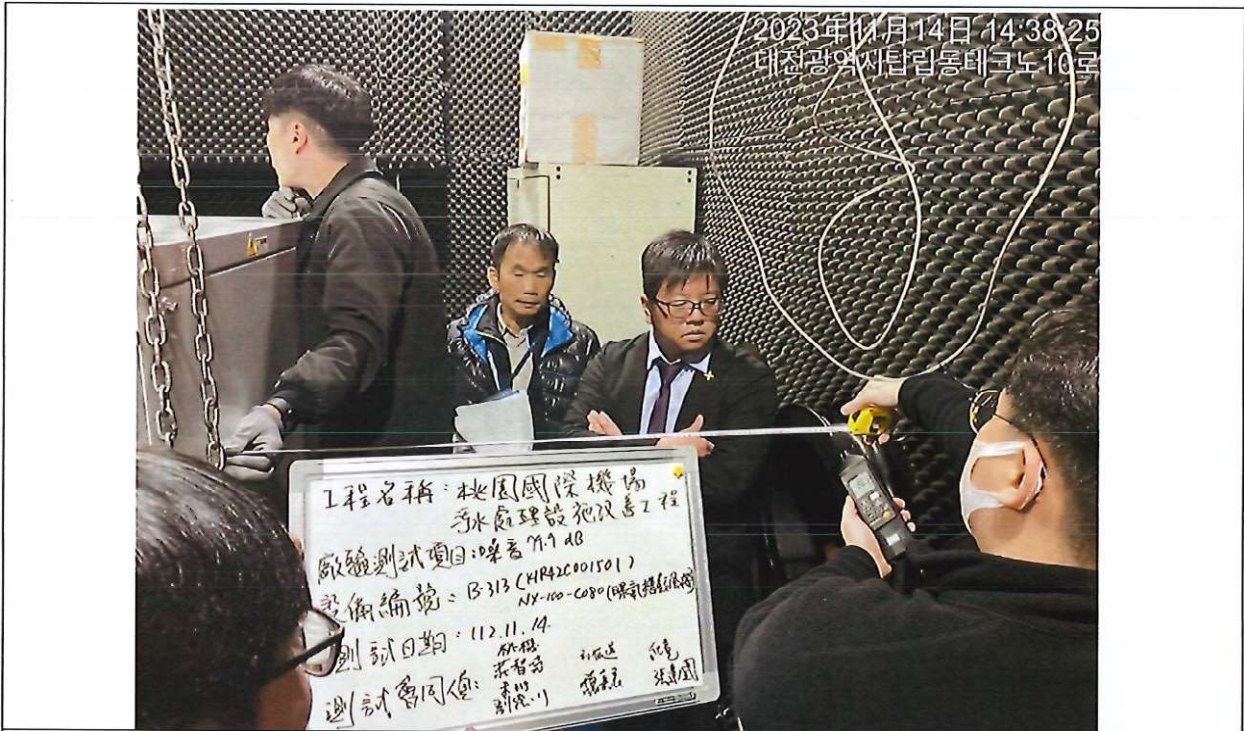 2023年11月14日 14:38:25
대전광역시탑립동테크노10로
工程名稱：桃園國際機場
污水處理設施改善工程
廠驗測試項目：噪音 79.9 dB
設備編號：B-313 (K1R42C001501)
NX-100-C080 (曝氣鼓風機)
測試日期：112.11.14.
測試會同人員：